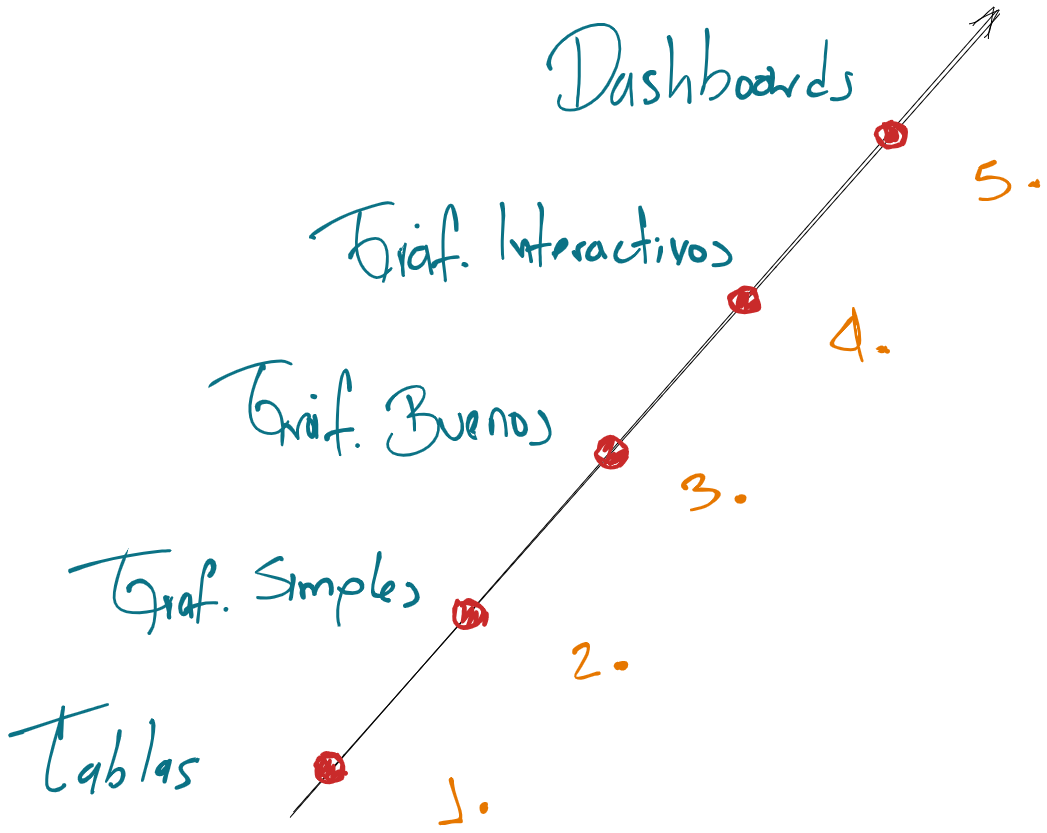 Dashboards
5.
Gráf. Interactivos
4.
Gráf. Buenos
3.
Graf. Simples
2.
Tablas
1.